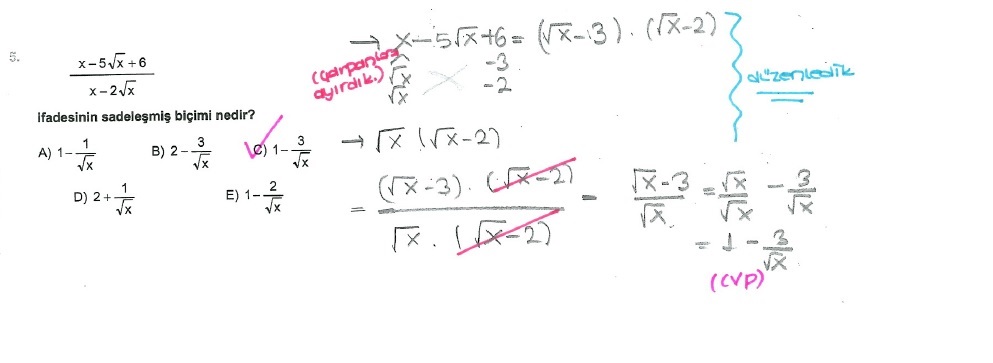 5.
x−5√x+6
x−2√x
ifadesinin sadeleşmiş biçimi nedir?
A) 1−1/√x B) 2−3/√x C) 1−3/√x
D) 2+1/√x E) 1−2/√x
→ x−5√x+6 = (√x−3).(√x−2)
(çarpanlara ayırdık.)
√x −3
√x −2
düzenledik
→ √x (√x−2)
= (√x−3).(√x−2) / √x.(√x−2) = √x−3/√x = √x/√x − 3/√x
= 1 − 3/√x
(CVP)